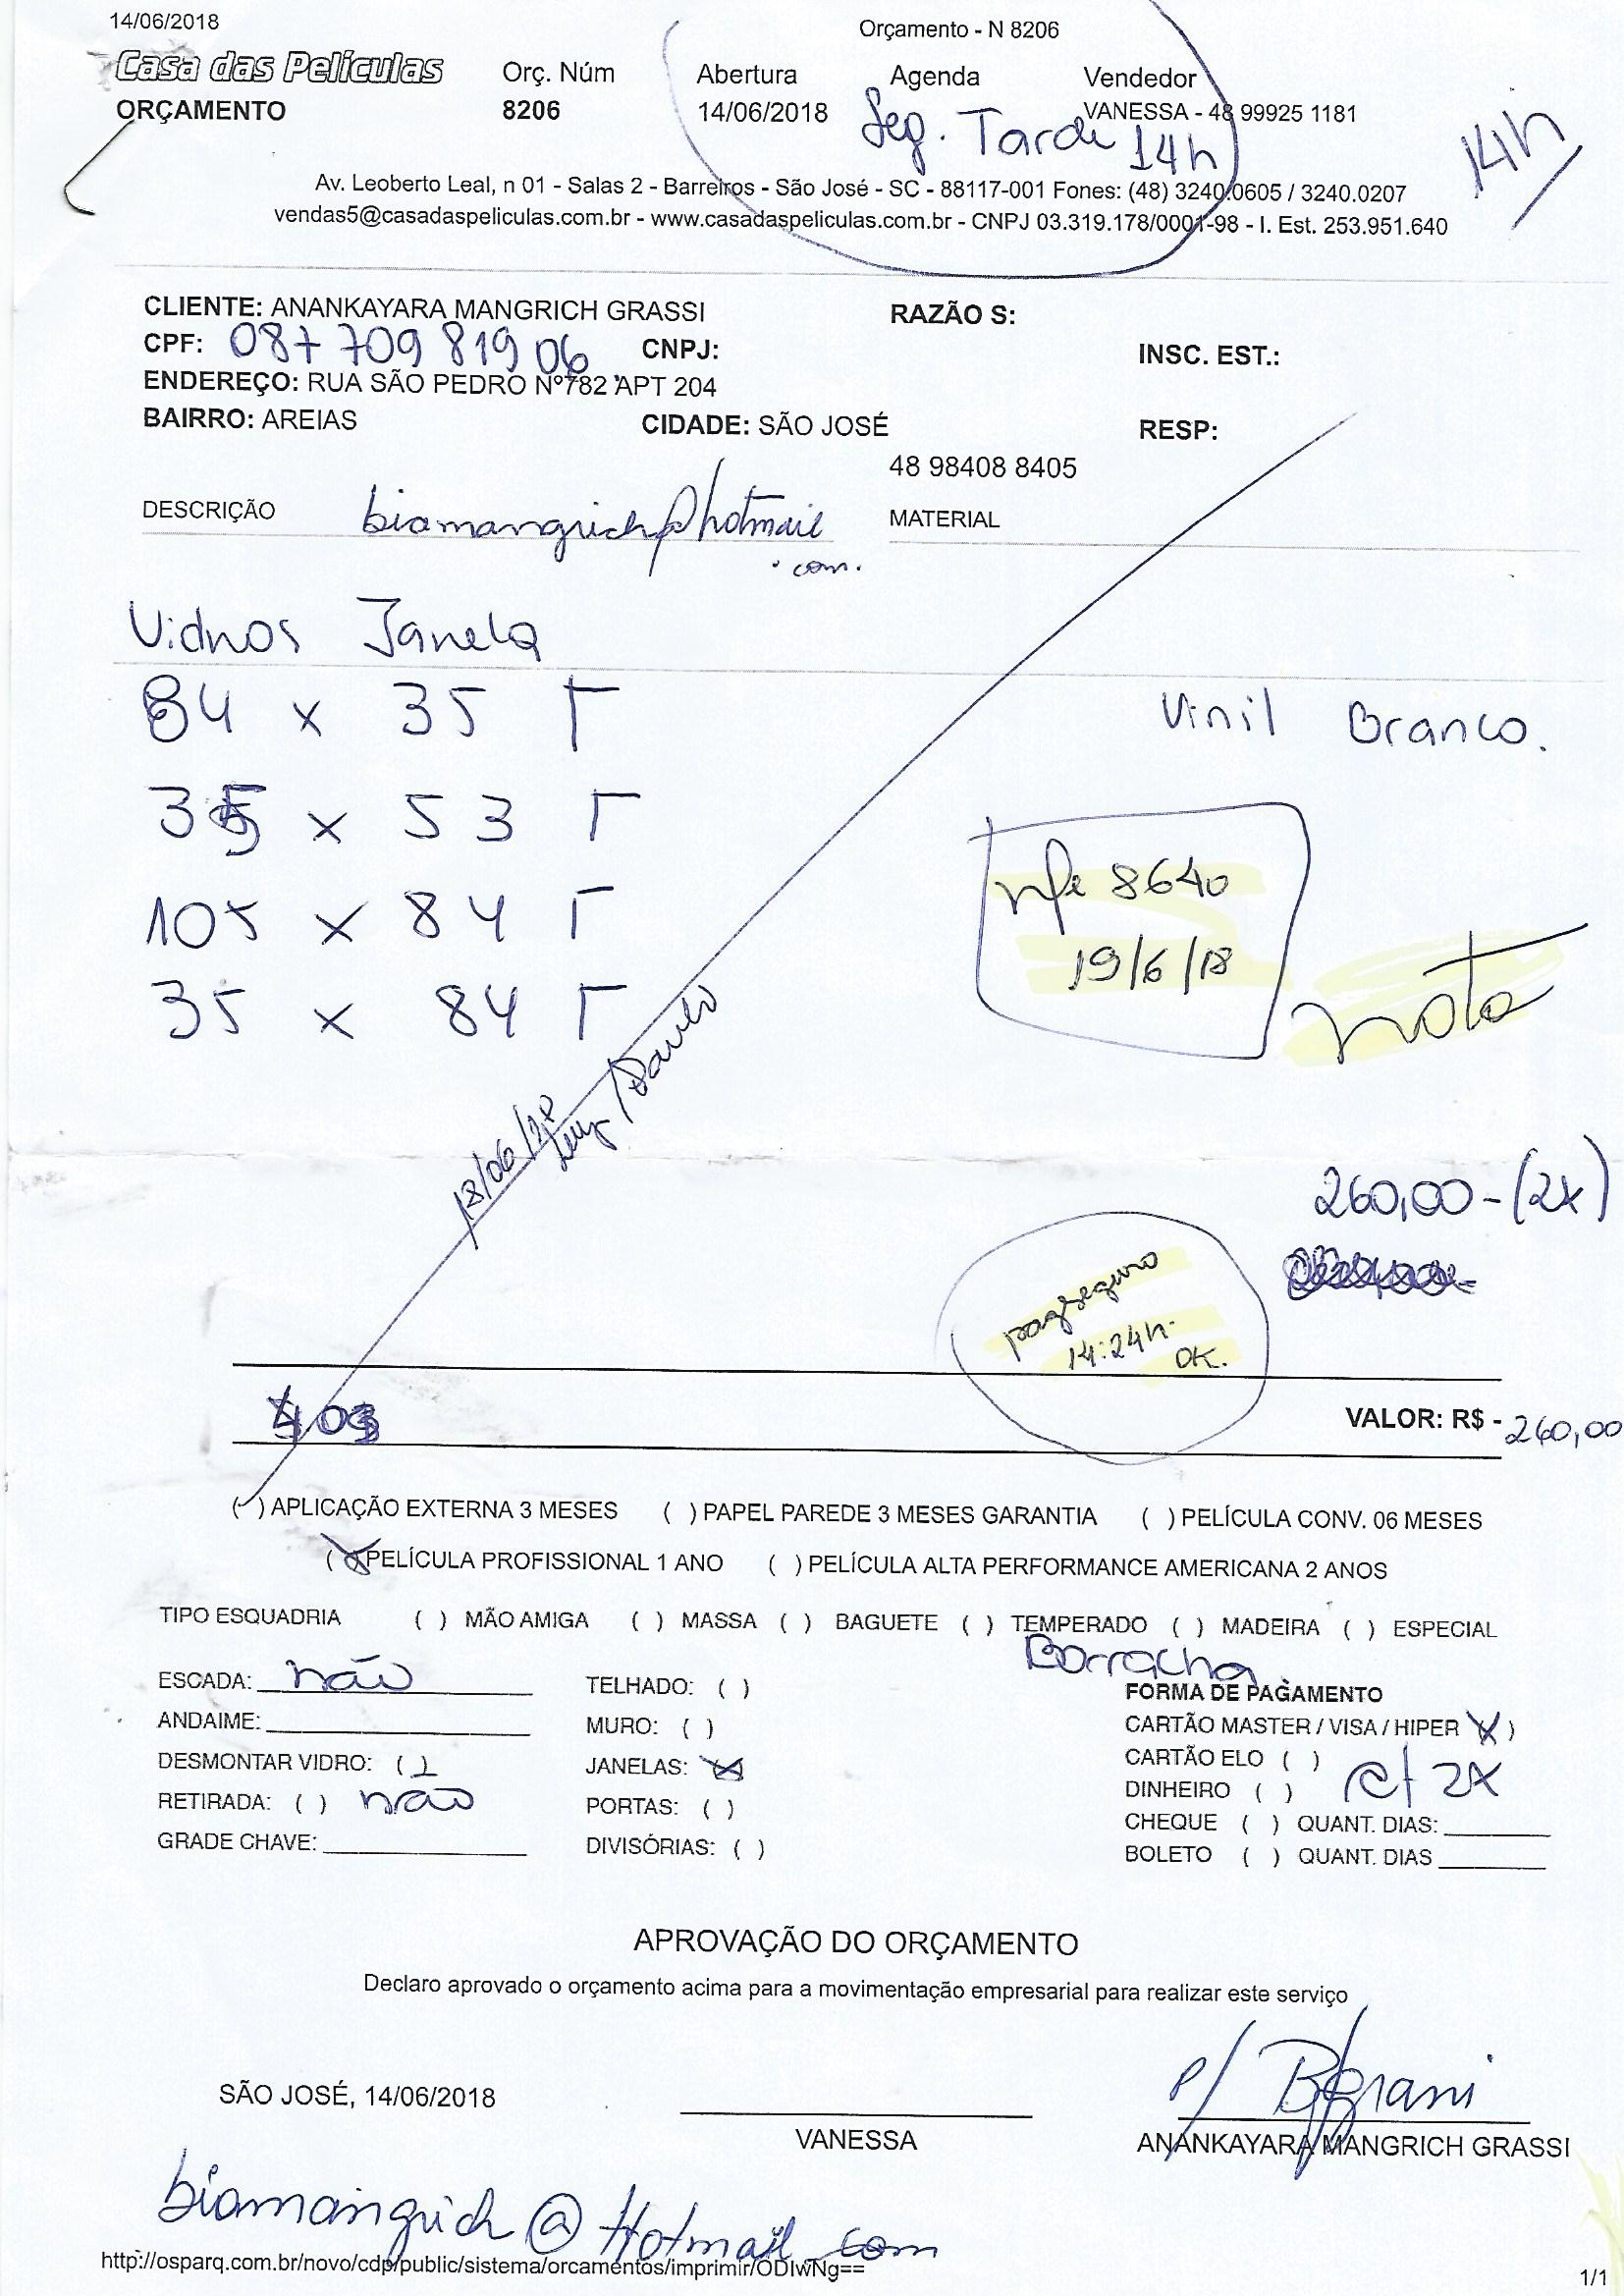 14/06/2018
Orçamento - N 8206
Casa das Películas
Orç. Núm
Abertura
Agenda
Vendedor
ORÇAMENTO
8206
14/06/2018
Seg. Tarde 14h
VANESSA - 48 99925 1181
14h
Av. Leoberto Leal, n 01 - Salas 2 - Barreiros - São José - SC - 88117-001 Fones: (48) 3240.0605 / 3240.0207
vendas5@casadaspeliculas.com.br - www.casadaspeliculas.com.br - CNPJ 03.319.178/0001-98 - I. Est. 253.951.640
CLIENTE: ANANKAYARA MANGRICH GRASSI
RAZÃO S:
CPF: 087 709 819 06
CNPJ:
INSC. EST.:
ENDEREÇO: RUA SÃO PEDRO Nº782 APT 204
BAIRRO: AREIAS
CIDADE: SÃO JOSÉ
RESP:
48 98408 8405
DESCRIÇÃO
biamangrich@hotmail
.com.
MATERIAL
Vidros Janela
84 x 35
Vinil Branco.
35 x 53
105 x 84
35 x 84
nfe 8640
19/6/18
nota
18/06/18
260,00 - (2x)
pagseguro
14:24h.
OK.
VALOR: R$ - 260,00
( ) APLICAÇÃO EXTERNA 3 MESES ( ) PAPEL PAREDE 3 MESES GARANTIA ( ) PELÍCULA CONV. 06 MESES
(X) PELÍCULA PROFISSIONAL 1 ANO ( ) PELÍCULA ALTA PERFORMANCE AMERICANA 2 ANOS
TIPO ESQUADRIA ( ) MÃO AMIGA ( ) MASSA ( ) BAGUETE ( ) TEMPERADO ( ) MADEIRA ( ) ESPECIAL
Borracha
ESCADA: não
TELHADO: ( )
FORMA DE PAGAMENTO
ANDAIME:
MURO: ( )
CARTÃO MASTER / VISA / HIPER (X)
DESMONTAR VIDRO: ( )
JANELAS: (X)
CARTÃO ELO ( )
RETIRADA: ( ) não
PORTAS: ( )
DINHEIRO ( )
2x
GRADE CHAVE:
DIVISÓRIAS: ( )
CHEQUE ( ) QUANT. DIAS:
BOLETO ( ) QUANT. DIAS
APROVAÇÃO DO ORÇAMENTO
Declaro aprovado o orçamento acima para a movimentação empresarial para realizar este serviço
SÃO JOSÉ, 14/06/2018
VANESSA
p/
ANANKAYARA MANGRICH GRASSI
biamangrich@Hotmail.com
http://osparq.com.br/novo/cdp/public/sistema/orcamentos/imprimir/ODIwNg==
1/1